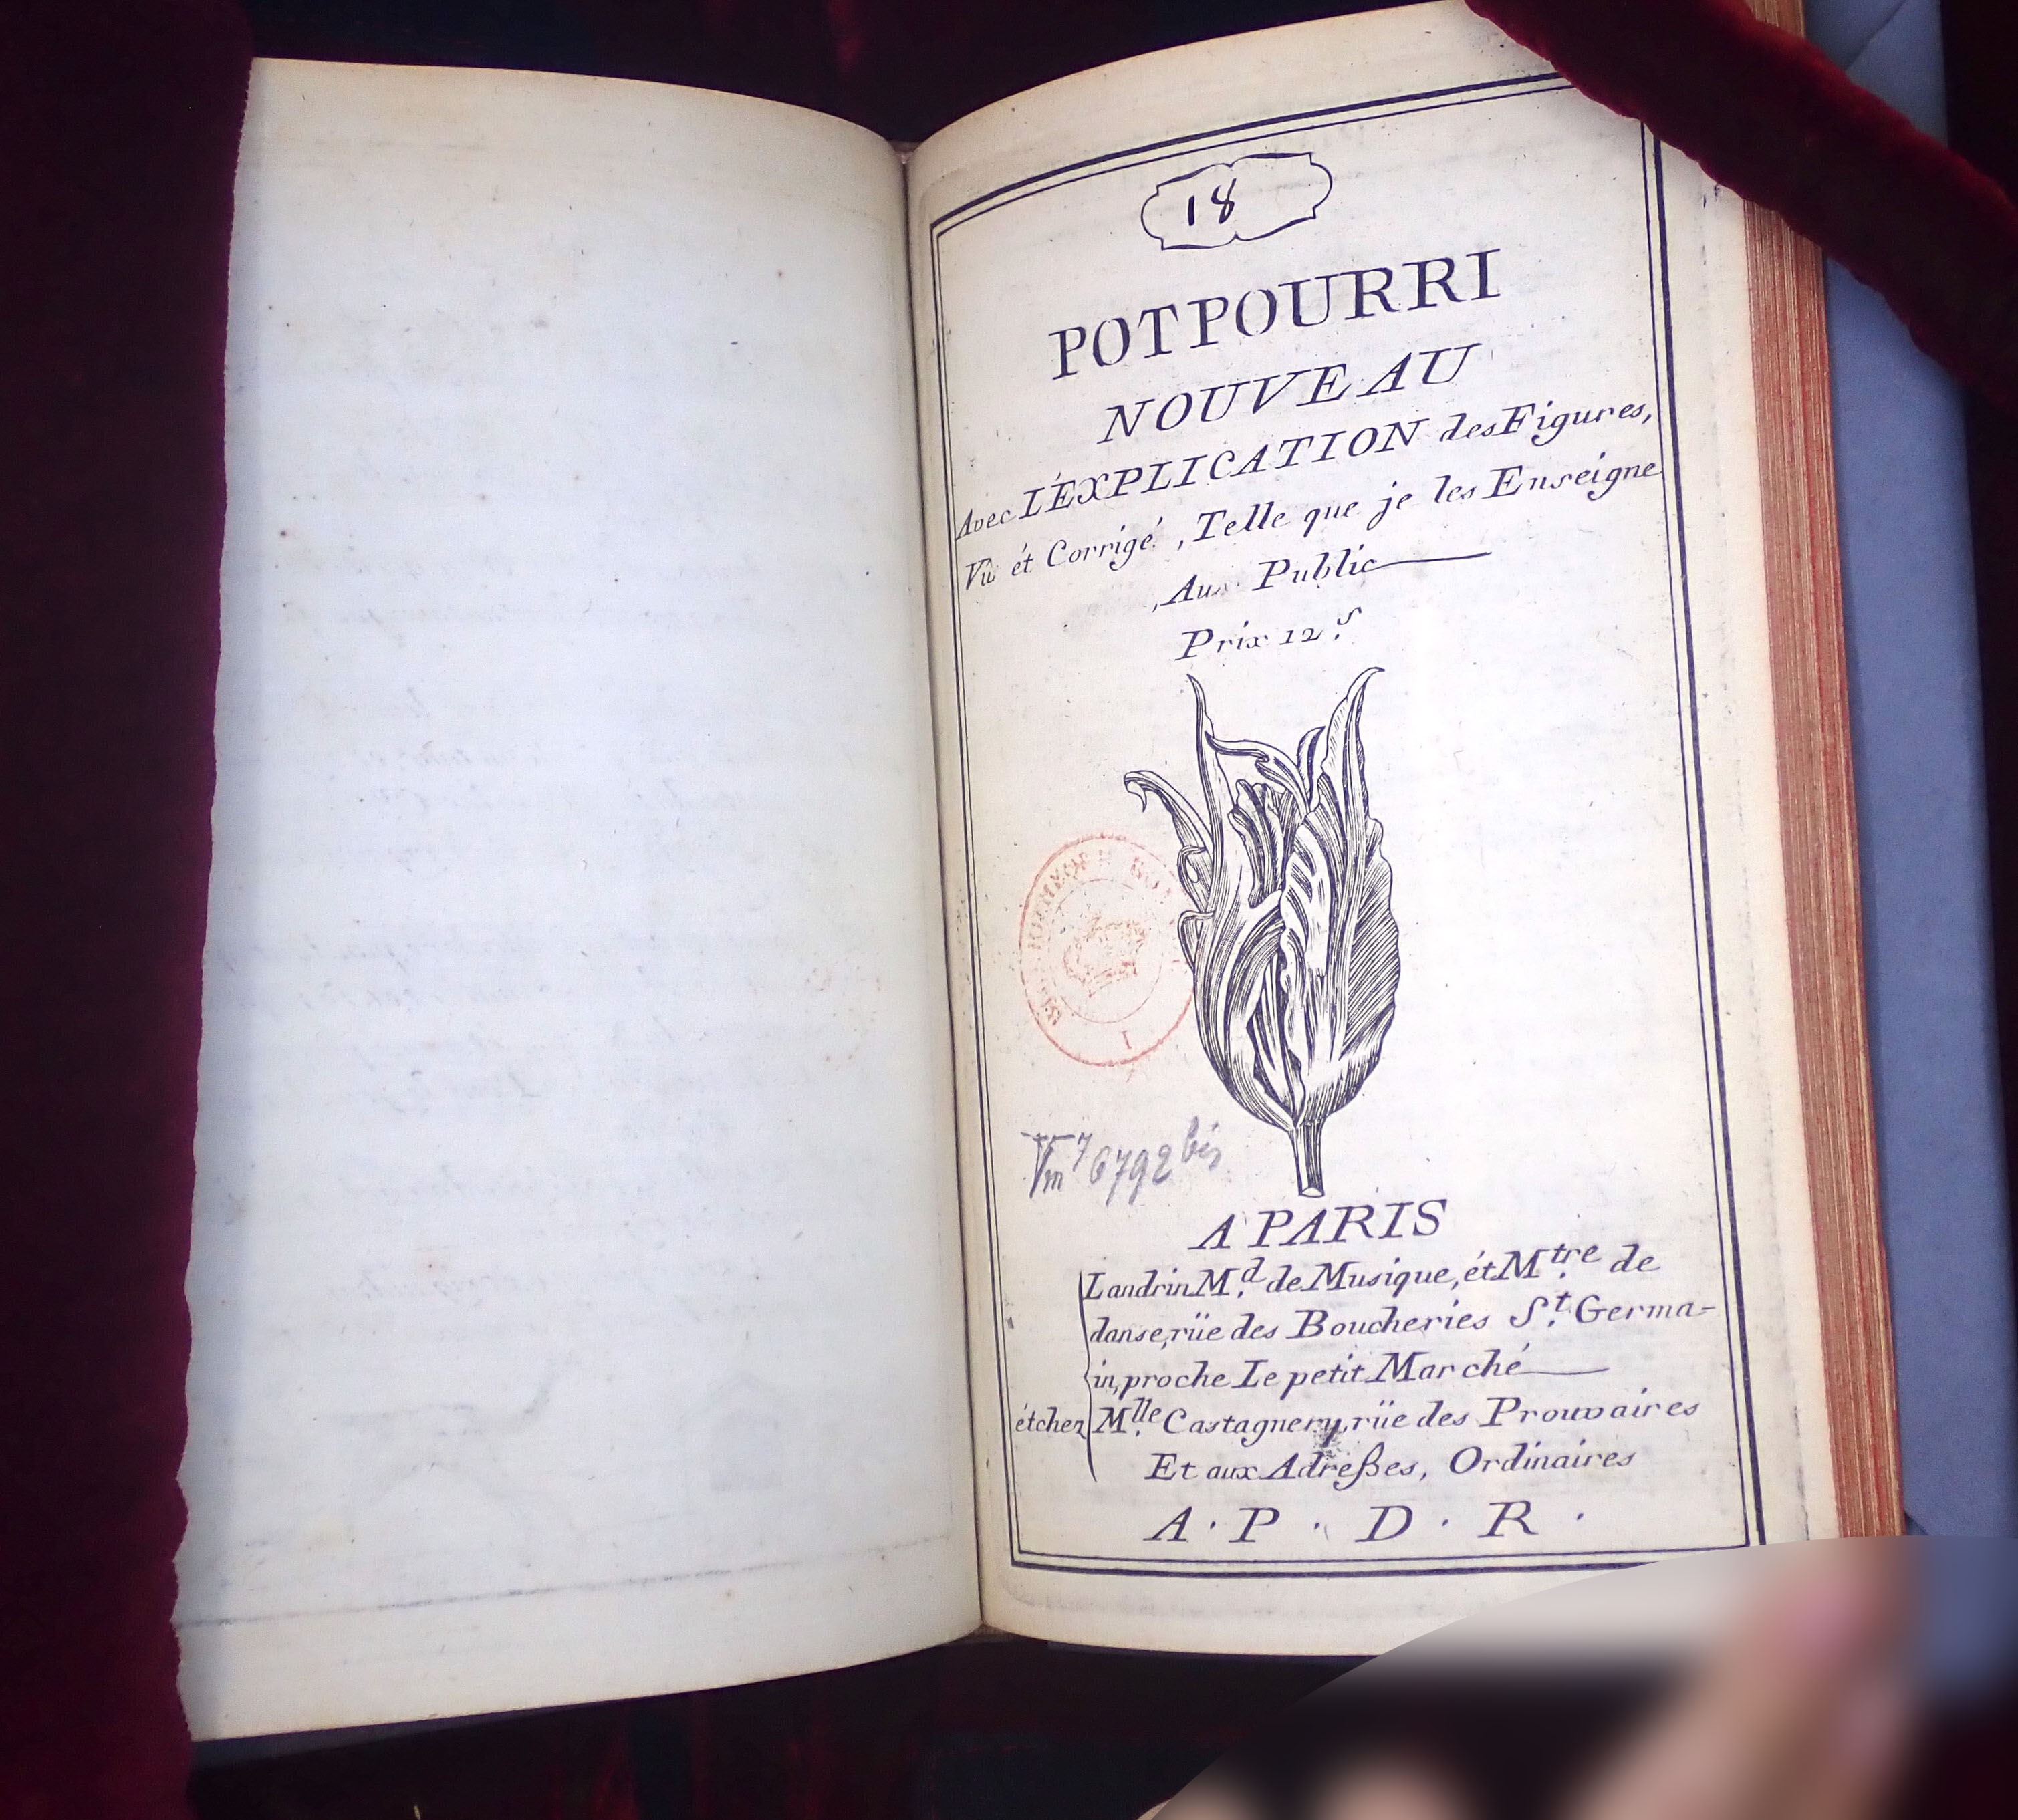 18
POTPOURRI
NOUVEAU
Avec L'EXPLICATION des Figures,
Vû ét Corrigé, Telle que je les Enseigne
Au Public
Prix 12.s
Vm7 6792 bis
A PARIS
Landrin M.d de Musique, ét M.tre de
danse, rüe des Boucheries S.t Germa-
in, proche Le petit Marché
ét chez M.lle Castagnery, rüe des Prouvaires
Et aux Adreßes, Ordinaires
A. P. D. R.